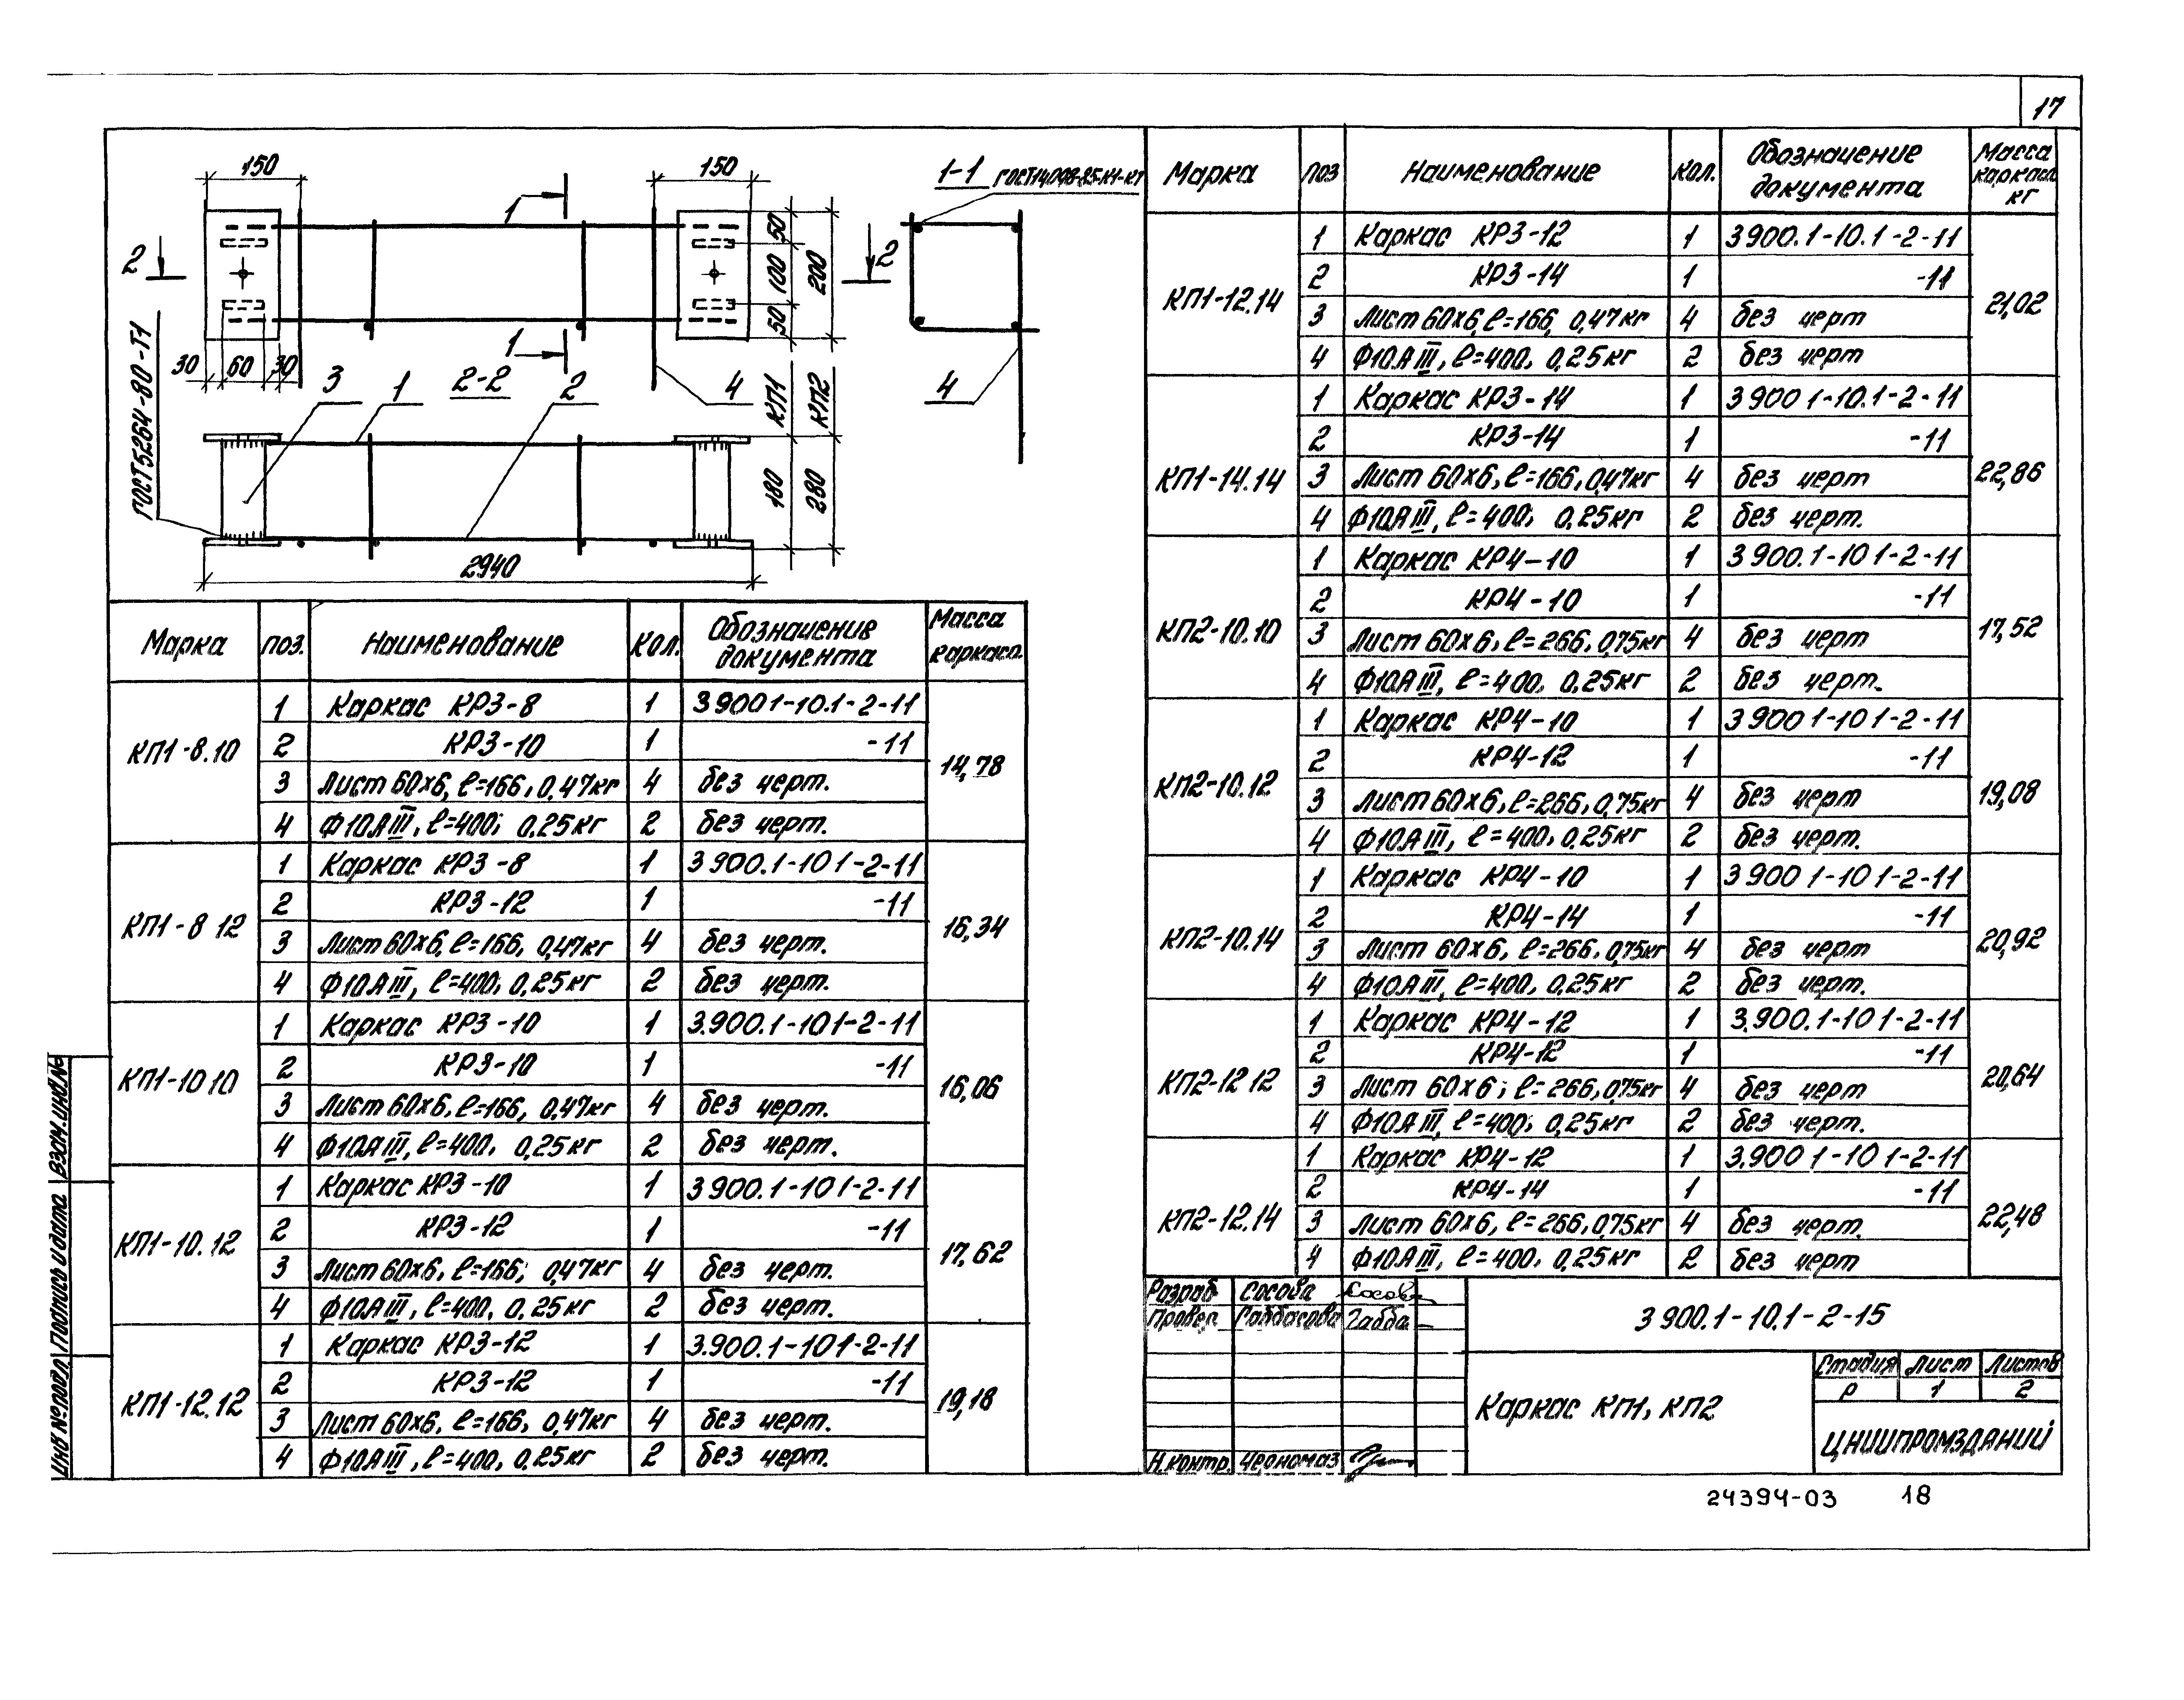 17
150
150
1
1
2
2
50
100
50
200
30
60
30
ГОСТ 5264-80-Т1
3
1
2-2
2
4
КП1
КП2
180
280
2940
1-1
ГОСТ 14.098-85-К1-КТ
4
Марка поз. Наименование Кол. Обозначение документа Масса каркаса
КП1-8.10 14,78
1 Каркас КР3-8 1 3 900 1-10.1-2-11
2 КР3-10 1 -11
3 Лист 60х6, ℓ=166, 0,47кг 4 без черт.
4 Ф10АIII, ℓ=400; 0,25кг 2 без черт.
КП1-8 12 16,34
1 Каркас КР3-8 1 3 900.1-10 1-2-11
2 КР3-12 1 -11
3 Лист 60х6, ℓ=166, 0,47кг 4 без черт.
4 Ф10АIII, ℓ=400, 0,25кг 2 без черт.
КП1-10 10 16,06
1 Каркас КР3-10 1 3.900.1-10 1-2-11
2 КР3-10 1 -11
3 Лист 60х6, ℓ=166, 0,47кг 4 без черт.
4 Ф10АIII, ℓ=400, 0,25кг 2 без черт.
КП1-10.12 17,62
1 Каркас КР3-10 1 3 900.1-10 1-2-11
2 КР3-12 1 -11
3 Лист 60х6, ℓ=166, 0,47кг 4 без черт.
4 Ф10АIII, ℓ=400, 0,25кг 2 без черт.
КП1-12.12 19,18
1 Каркас КР3-12 1 3.900.1-10 1-2-11
2 КР3-12 1 -11
3 Лист 60х6, ℓ=166, 0,47кг 4 без черт.
4 Ф10АIII, ℓ=400, 0,25кг 2 без черт.
Марка поз Наименование кол. Обозначение документа Масса каркаса кг
КП1-12.14 21,02
1 Каркас КР3-12 1 3 900.1-10.1-2-11
2 КР3-14 1 -11
3 Лист 60х6, ℓ=166, 0,47кг 4 без черт
4 Ф10АIII, ℓ=400, 0,25кг 2 без черт
КП1-14.14 22,86
1 Каркас КР3-14 1 3 900 1-10.1-2-11
2 КР3-14 1 -11
3 Лист 60х6, ℓ=166, 0,47кг 4 без черт
4 Ф10АIII, ℓ=400; 0,25кг 2 без черт.
КП2-10.10 17,52
1 Каркас КР4-10 1 3 900.1-10 1-2-11
2 КР4-10 1 -11
3 Лист 60х6, ℓ=266, 0,75кг 4 без черт
4 Ф10АIII, ℓ=400, 0,25кг 2 без черт.
КП2-10.12 19,08
1 Каркас КР4-10 1 3 900 1-10 1-2-11
2 КР4-12 1 -11
3 Лист 60х6, ℓ=266, 0,75кг 4 без черт
4 Ф10АIII, ℓ=400, 0,25кг 2 без черт.
КП2-10.14 20,92
1 Каркас КР4-10 1 3 900 1-10 1-2-11
2 КР4-14 1 -11
3 Лист 60х6, ℓ=266, 0,75кг 4 без черт
4 Ф10АIII, ℓ=400, 0,25кг 2 без черт.
КП2-12 12 20,64
1 Каркас КР4-12 1 3.900.1-10 1-2-11
2 КР4-12 1 -11
3 Лист 60х6; ℓ=266, 0,75кг 4 без черт
4 Ф10АIII, ℓ=400; 0,25кг 2 без черт.
КП2-12.14 22,48
1 Каркас КР4-12 1 3.900 1-10 1-2-11
2 КР4-14 1 -11
3 Лист 60х6, ℓ=266, 0,75кг 4 без черт.
4 Ф10АIII, ℓ=400, 0,25кг 2 без черт
Разраб Сосова Сосова
Провер Габбасова Габба
Н.контр. Черномаз
3 900.1-10.1-2-15
Каркас КП1, КП2
Стадия Лист Листов
Р 1 2
ЦНИИПРОМЗДАНИЙ
Инв № подл. Подпись и дата Взам.инв.№
24394-03 18